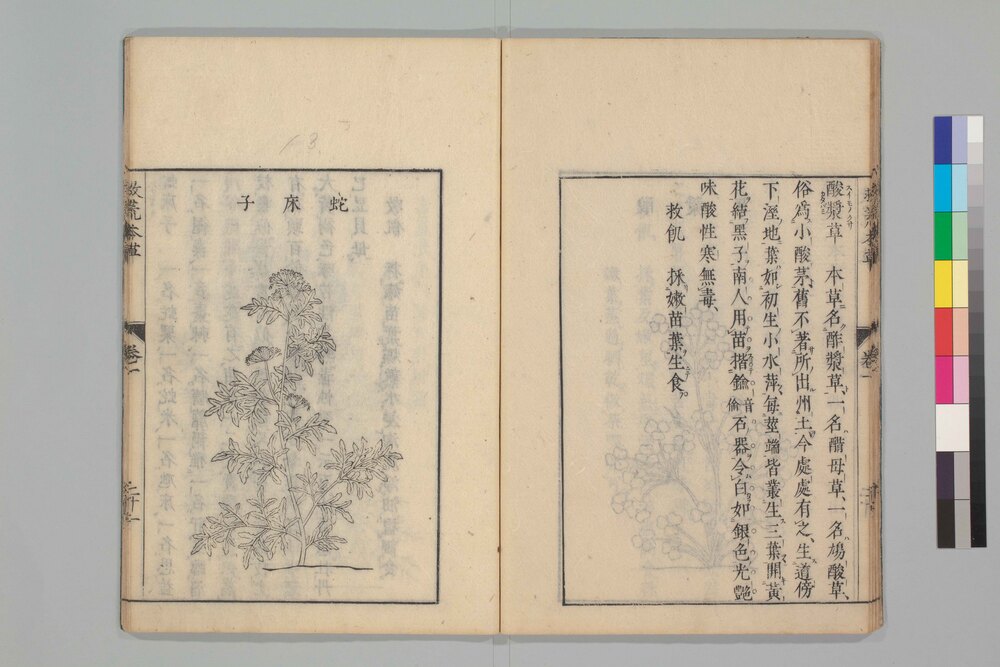 酸漿草 本草名酢漿草、一名醋母草、一名鳩酸草、
俗為小酸茅、舊不著所出州土、今處處有之、生道傍
下溼地、葉如初生小水萍、每莖端皆叢生三葉、開黃
花結黑子、南人用苗揩鍮音偷石器、令白如銀色光艷
味酸性寒無毒、
救飢 採嫩苗葉生食、
救荒本草
卷一
蛇床子
救荒本草